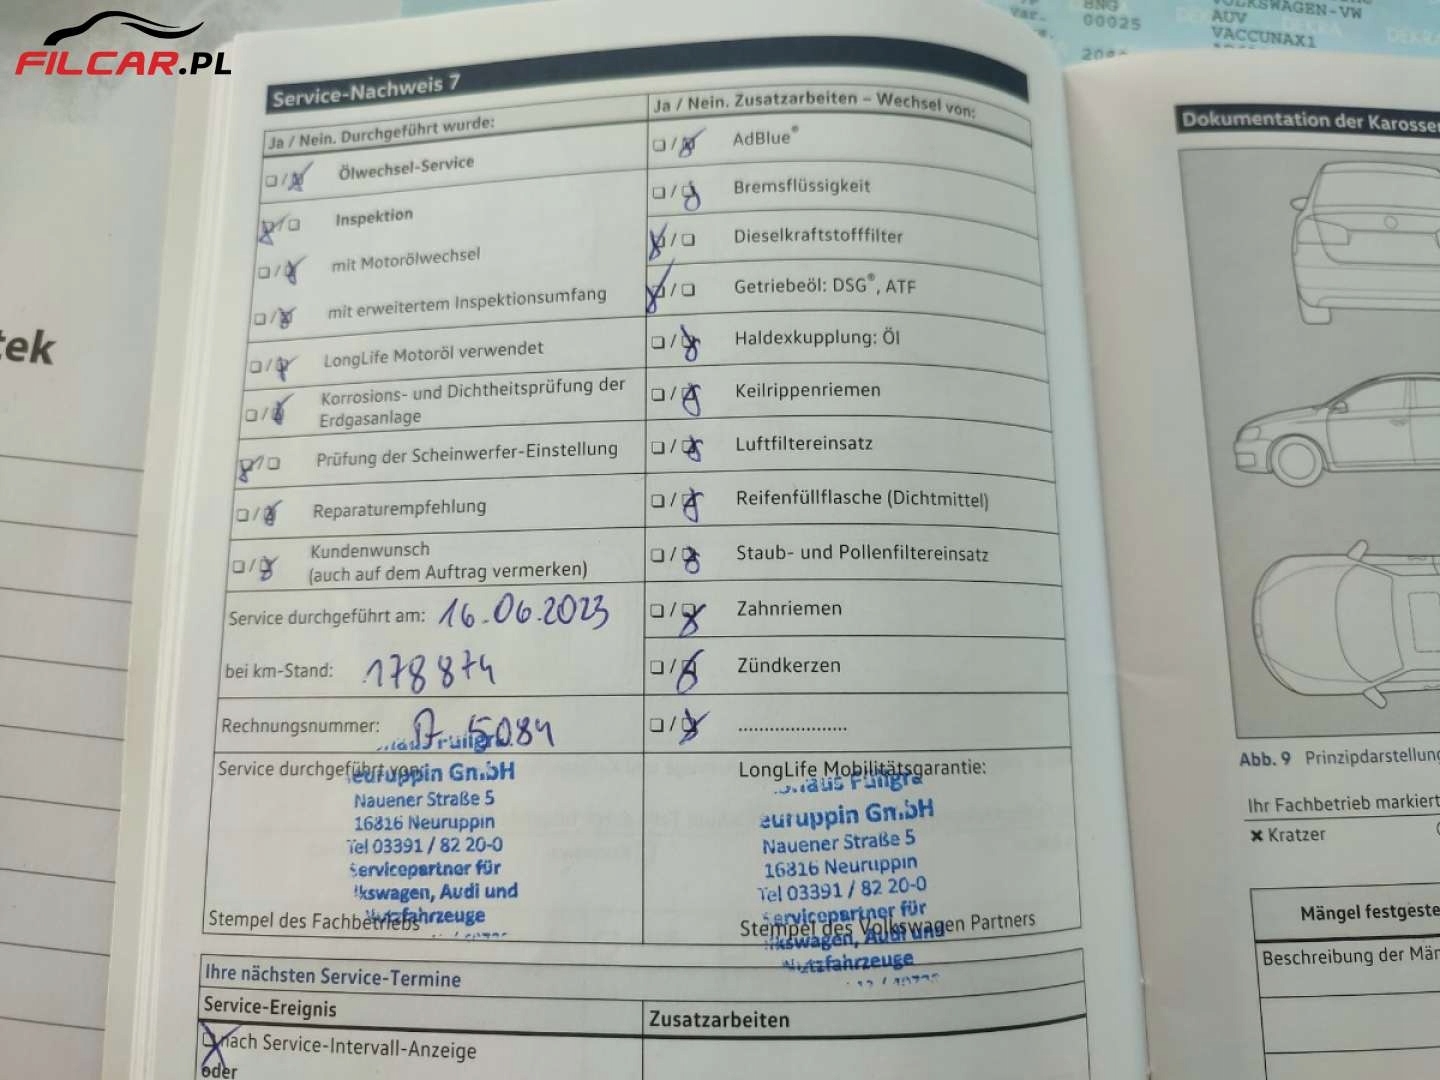 FILCAR.PL
BNG
VOLKSWAGEN-VW
Var.
00025
AUV
VACCUNAX1
tek
Service-Nachweis 7
Ja / Nein. Durchgeführt wurde:
Ölwechsel-Service
Inspektion
mit Motorölwechsel
mit erweitertem Inspektionsumfang
LongLife Motoröl verwendet
Korrosions- und Dichtheitsprüfung der
Erdgasanlage
Prüfung der Scheinwerfer-Einstellung
Reparaturempfehlung
Kundenwunsch
(auch auf dem Auftrag vermerken)
Service durchgeführt am: 16.06.2023
bei km-Stand: 178874
Rechnungsnummer: 5084
Service durchgeführt von:
euruppin GmbH
Nauener Straße 5
16816 Neuruppin
Tel 03391 / 82 20-0
Servicepartner für
lkswagen, Audi und
utzfahrzeuge
Stempel des Fachbetriebs
Ja / Nein. Zusatzarbeiten – Wechsel von:
AdBlue®
Bremsflüssigkeit
Dieselkraftstofffilter
Getriebeöl: DSG®, ATF
Haldexkupplung: Öl
Keilrippenriemen
Luftfiltereinsatz
Reifenfüllflasche (Dichtmittel)
Staub- und Pollenfiltereinsatz
Zahnriemen
Zündkerzen
.....................
LongLife Mobilitätsgarantie:
euruppin GmbH
Nauener Straße 5
16816 Neuruppin
Tel 03391 / 82 20-0
Servicepartner für
lkswagen, Audi und
utzfahrzeuge
Stempel des Volkswagen Partners
Ihre nächsten Service-Termine
Service-Ereignis
Zusatzarbeiten
nach Service-Intervall-Anzeige
oder
Dokumentation der Karosser
Abb. 9 Prinzipdarstellung
Ihr Fachbetrieb markiert
✖ Kratzer
Mängel festgeste
Beschreibung der Män